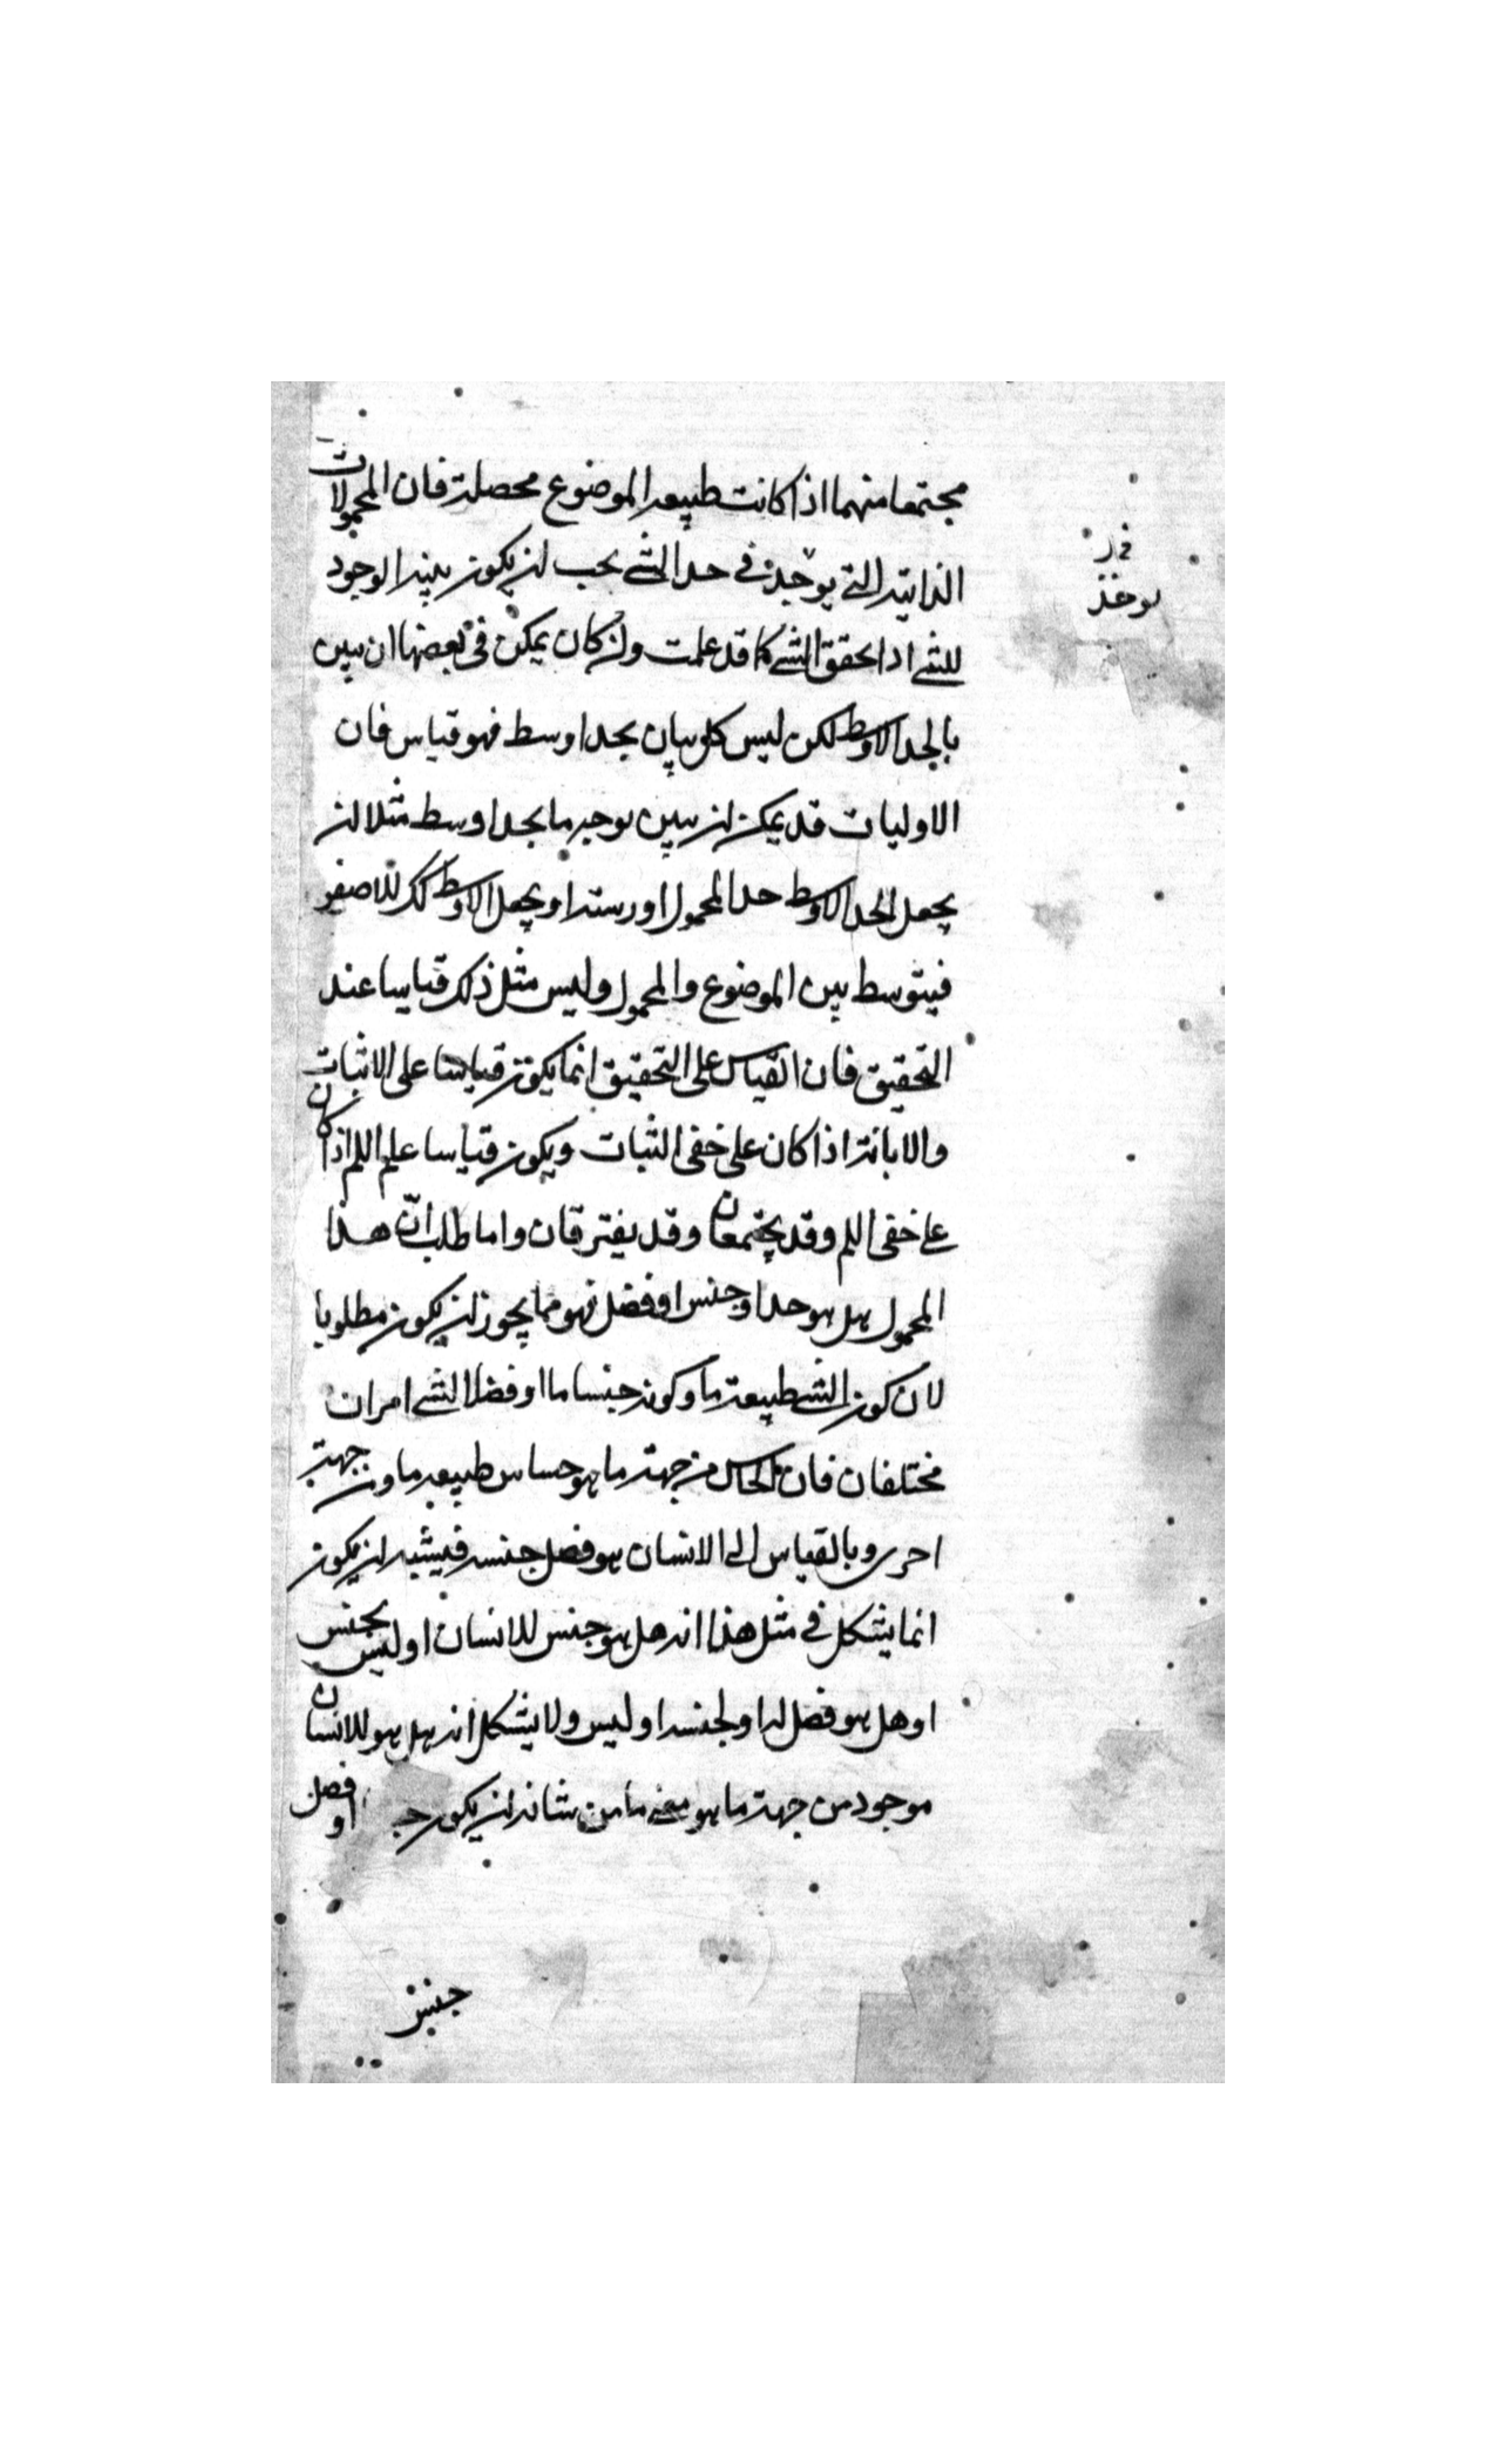 مجتمعا منهما اذا كانت طبيعة الموضوع محصلة فان المحمولات
الذاتية التي يوجد في حد الشئ يجب ان يكون بينة الوجود
للشئ اذا تحقق الشئ كما قد علمت وان كان يمكن في بعضها ان يبين
بالحد الاوسط لكن ليس كل بيان بحد اوسط فهو قياس فان
الاوليات قد يمكن ان يبين بوجه ما بحد اوسط مثلا ان
يجعل الحد الاوسط حد المحمول او رسمه او يجعل الاوسط كك للاصغر
فيتوسط بين الموضوع والمحمول وليس مثل ذلك قياسا عند
التحقيق فان القياس على التحقيق انما يكون قياسا على الاثبات
والابانة اذا كان على خفى الثبات ويكون قياسا على اللم اذا كان
على خفى اللم وقد يجتمعان وقد يفترقان واما طلب انّ هذا
المحمول هل هو حد او جنس او فصل فهو مما يجوز ان يكون مطلوبا
لان كون الشئ طبيعة ما وكونه جنسا ما او فصلا لشئ امران
مختلفان فان الحساس من جهة ما هو حساس طبيعة ما ومن جهة
اخرى وبالقياس الى الانسان هو فصل جنسه فيشبه ان يكون
انما يشكل في مثل هذا انه هل هو جنس للانسان او ليس بجنس
او هل هو فصل له او لجنسه او ليس ولا يشكل انه هل هو للانسان
موجود من جهة ما هو معنى ما من شانه ان يكون او فصل
جنس
يوخذ